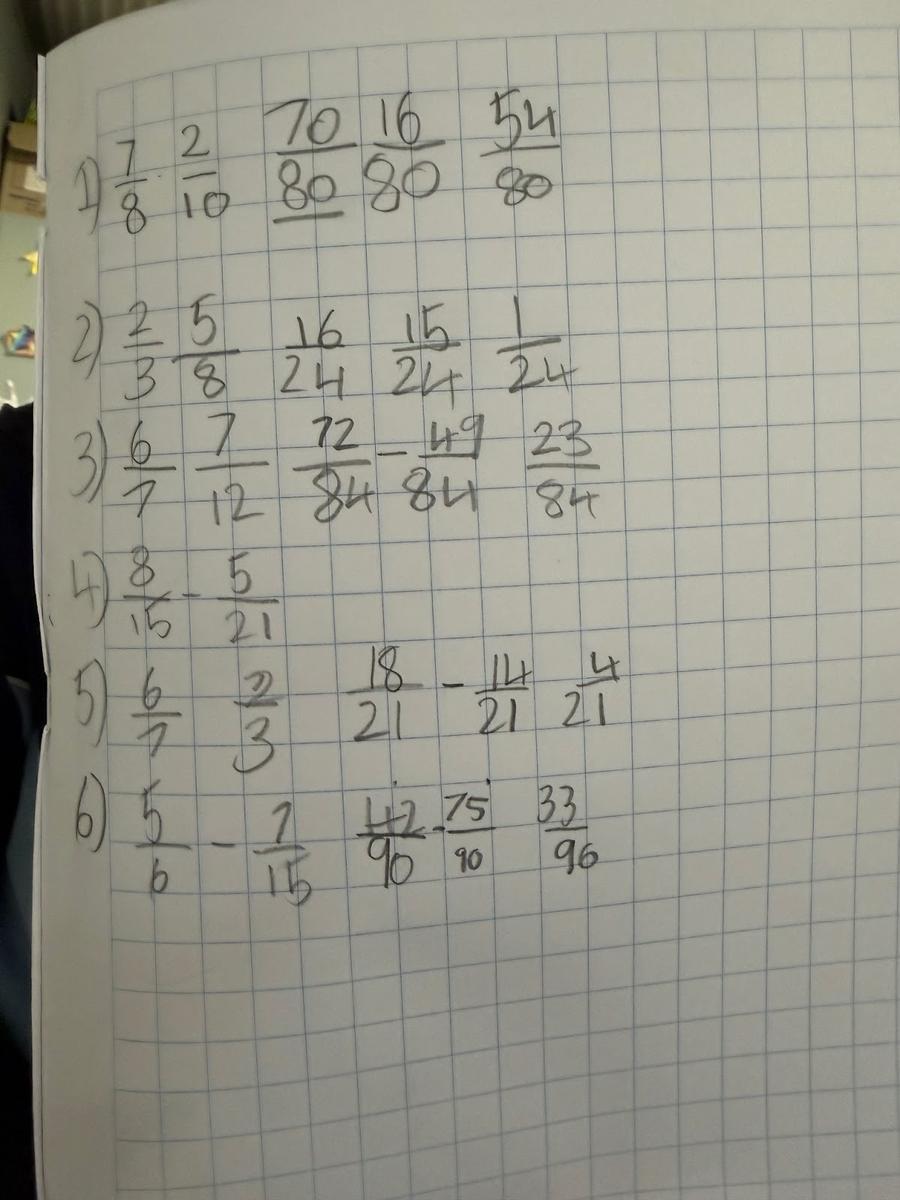 1) 7/8 2/10 70/80 16/80 54/80
2) 2/3 5/8 16/24 15/24 1/24
3) 6/7 7/12 72/84 - 49/84 23/84
4) 8/15 - 5/21
5) 6/7 2/3 18/21 - 14/21 4/21
6) 5/6 - 7/15 42/90 - 75/90 33/96